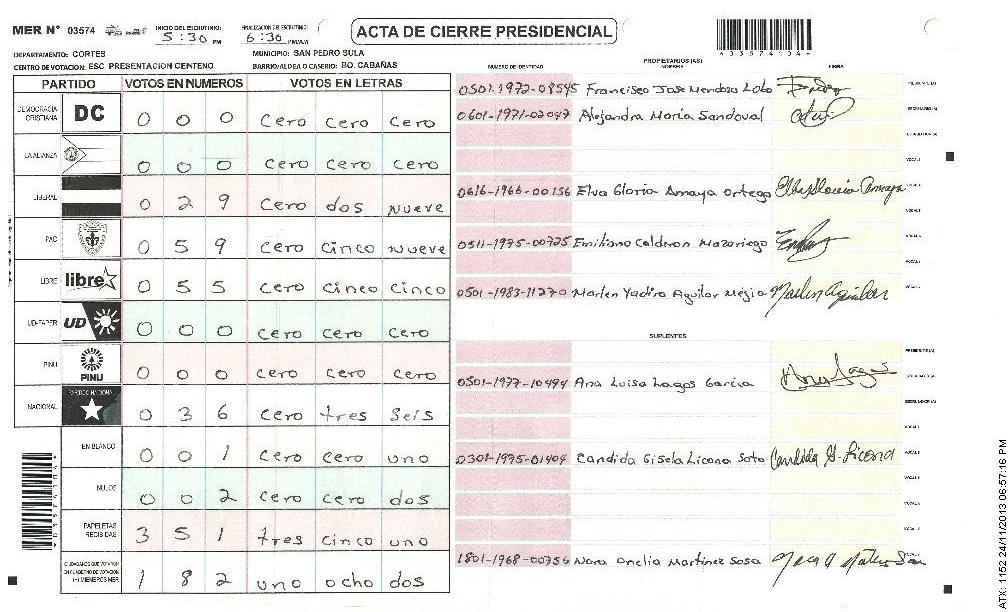 MER Nº 03574 INICIO DEL ESCRUTINIO: 5:30 PM FINALIZACION DEL ESCRUTINIO: 6:30 PM/A/M ACTA DE CIERRE PRESIDENCIAL
DEPARTAMENTO: CORTES MUNICIPIO: SAN PEDRO SULA
CENTRO DE VOTACION: ESC. PRESENTACION CENTENO BARRIO/ALDEA O CASERIO: BO. CABAÑAS
PARTIDO VOTOS EN NUMEROS VOTOS EN LETRAS
DEMOCRACIA CRISTIANA DC 0 0 0 cero cero cero
LA ALIANZA 0 0 0 cero cero cero
LIBERAL 0 2 9 cero dos nueve
PAC 0 5 9 cero cinco nueve
LIBRE libre 0 5 5 cero cinco cinco
UD-FAPER UD 0 0 0 cero cero cero
PINU PINU 0 0 0 cero cero cero
NACIONAL PARTIDO NACIONAL 0 3 6 cero tres seis
EN BLANCO 0 0 1 cero cero uno
NULOS 0 0 2 cero cero dos
PAPELETAS RECIBIDAS 3 5 1 tres cinco uno
CIUDADANOS QUE VOTARON EN CUADERNO DE VOTACION (+) MIEMBROS MER 1 8 2 uno ocho dos
PROPIETARIOS (AS)
NUMERO DE IDENTIDAD NOMBRE FIRMA
0501-1972-08545 Francisco Jose Mendoza Lobo PRESIDENTE (A)
0601-1971-02047 Alejandra Maria Sandoval SECRETARIO (A)
ESCRUTADOR (A)
VOCAL I
0616-1966-00156 Elva Gloria Amaya Ortega
0511-1975-00725 Emiliano Calderon Mazariego
0501-1983-11270 Marlen Yadira Aguilar Mejia Marlen Aguilar
SUPLENTES
PRESIDENTE (A)
0501-1977-10494 Ana Luisa Lagos Garcia SECRETARIO (A)
ESCRUTADOR (A)
0301-1995-01404 Candida Gisela Licona Soto Candida G. Licona
1801-1968-00756 Nora Onelia Martinez Sosa
ATX: 1152 24/11/2013 06:57:16 PM